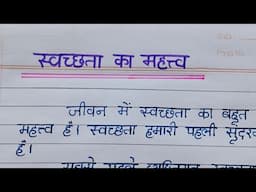 स्वच्छता का महत्त्व
जीवन में स्वच्छता का बहुत
महत्त्व है। स्वच्छता हमारी पहली सुंदरता
है।
सबसे पहले